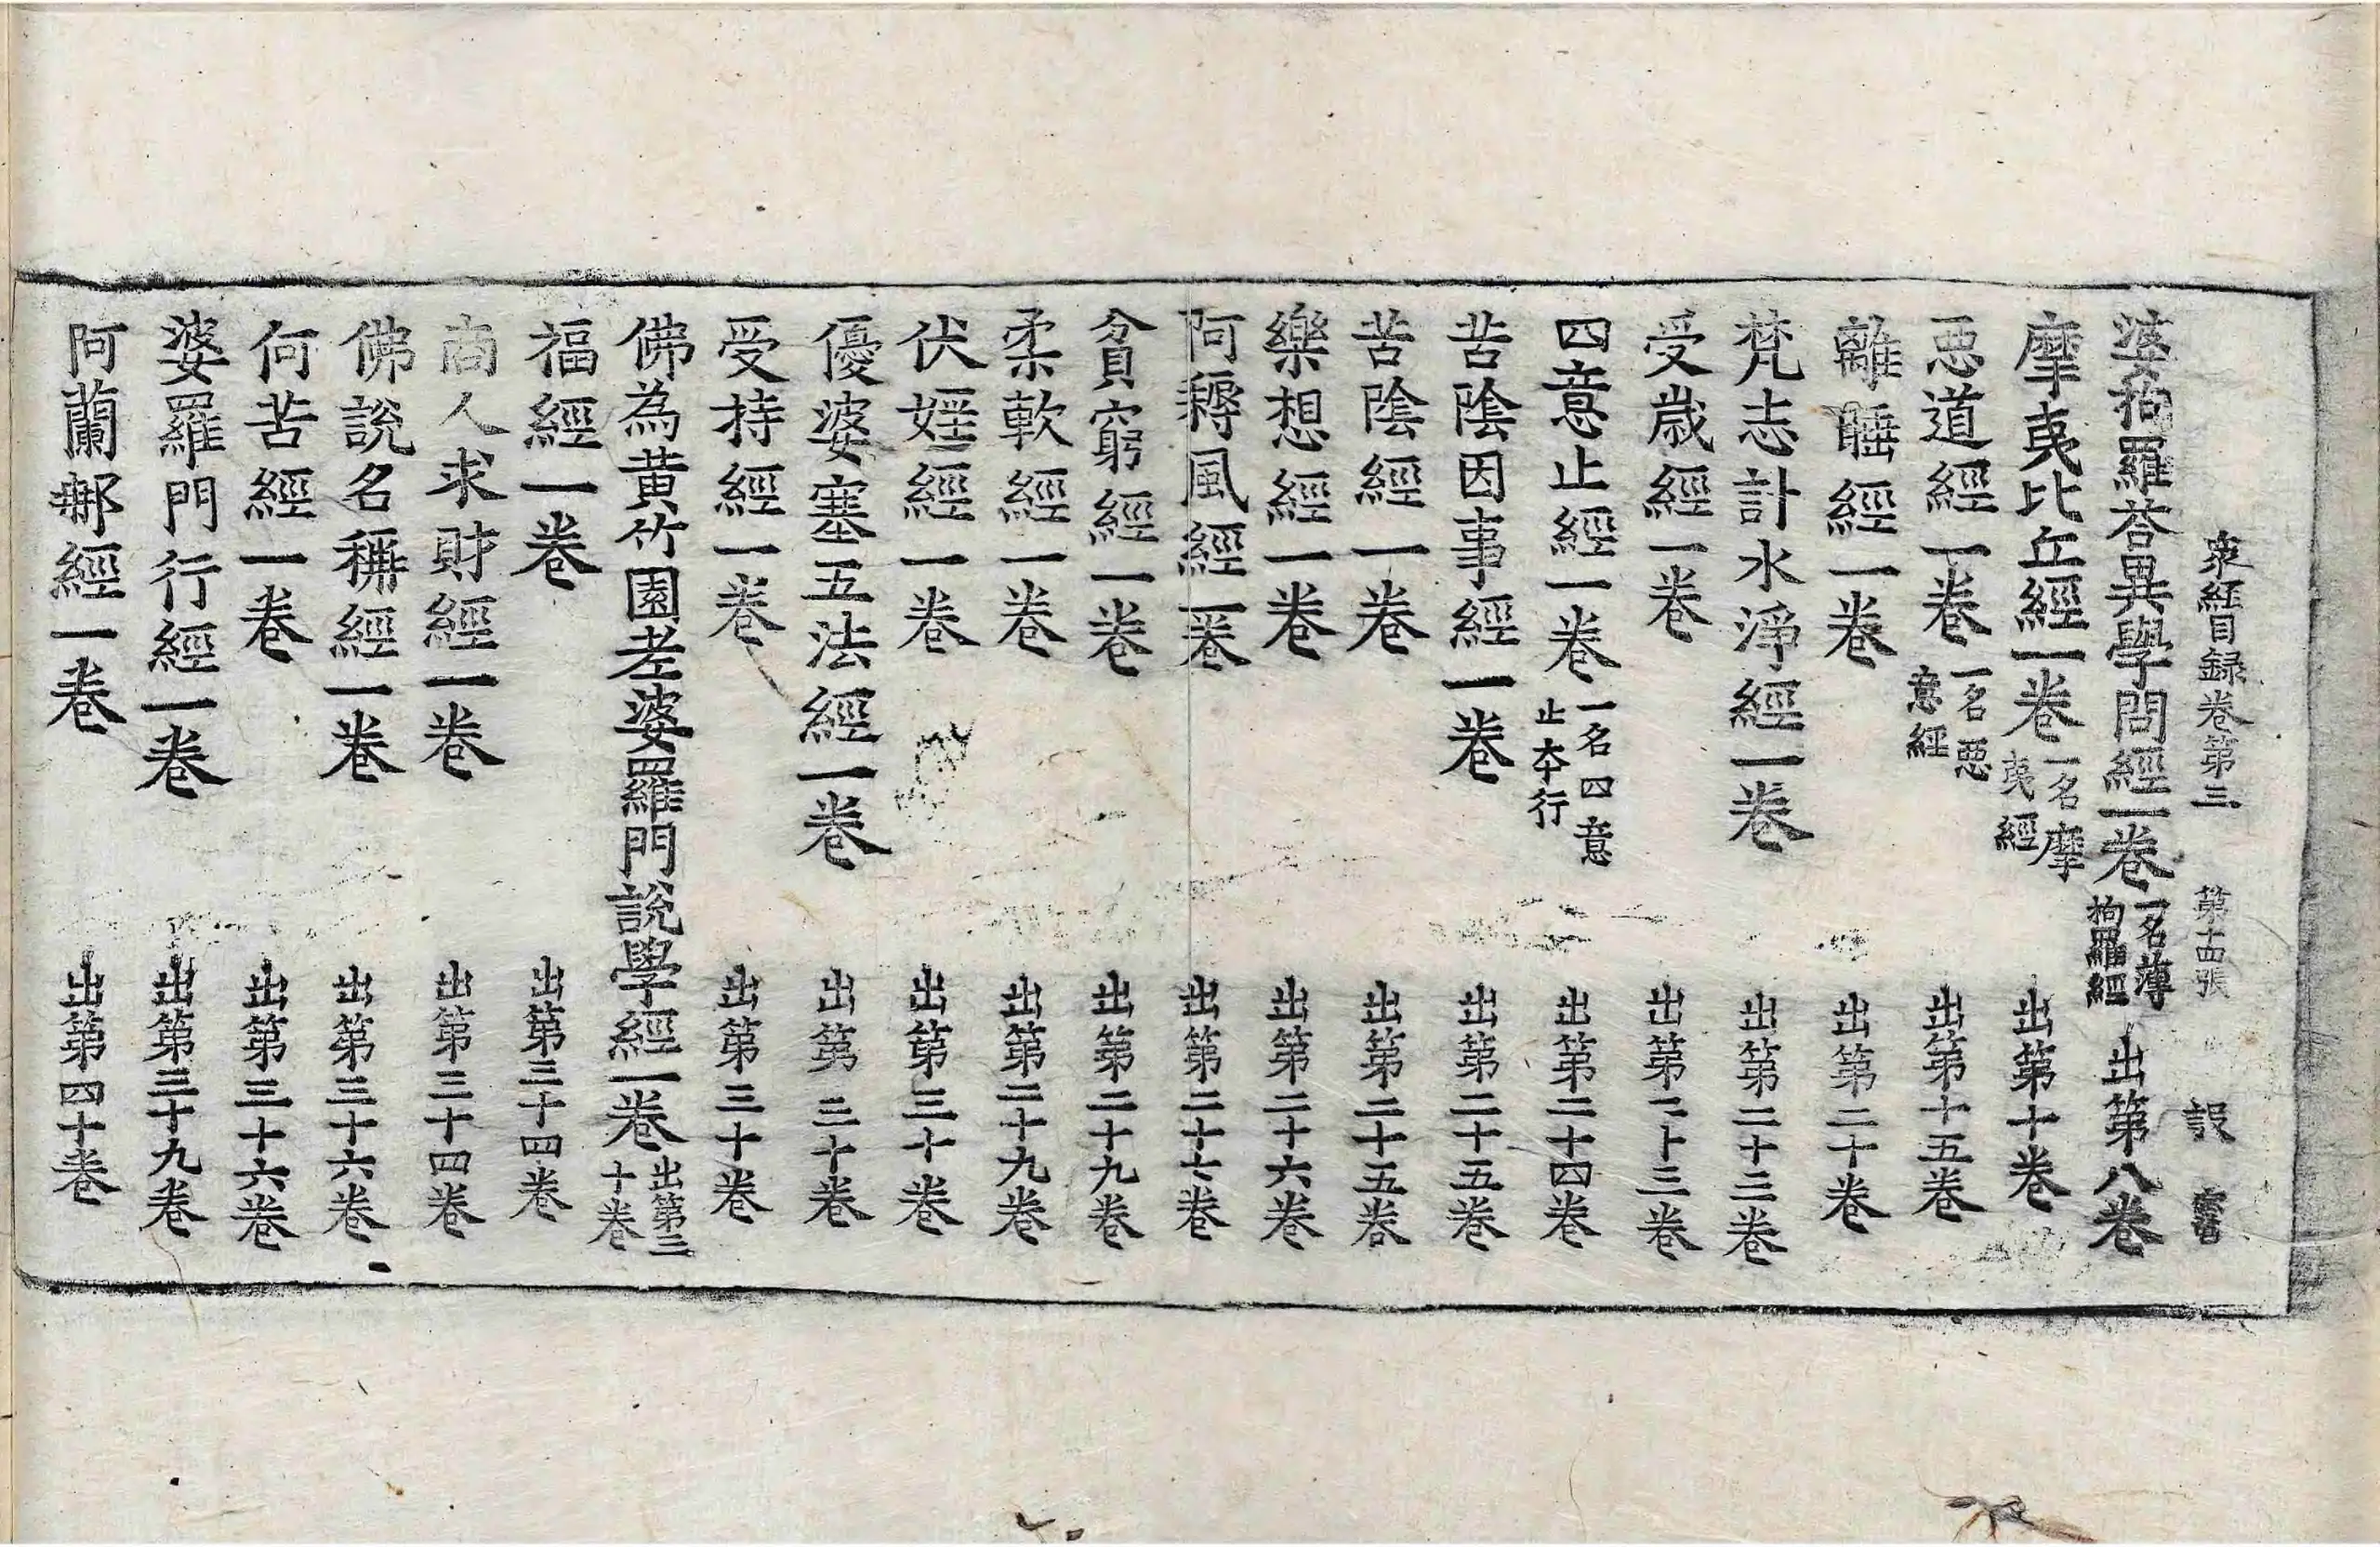 衆經目録卷第三 第十四張 設
婆拘羅荅異學問經一卷 一名薄拘羅經 出第八卷
摩夷比丘經一卷 一名摩夷經 出第十卷
惡道經一卷 一名惡意經 出第十五卷
離睡經一卷 出第二十卷
梵志計水淨經一卷 出第二十三卷
受歲經一卷 出第二十三卷
四意止經一卷 一名四意止夲行 出第二十四卷
苦陰因事經一卷 出第二十五卷
苦陰經一卷 出第二十五卷
樂想經一卷 出第二十六卷
阿耨風經一卷 出第二十七卷
貧窮經一卷 出第二十九卷
柔軟經一卷 出第二十九卷
伏婬經一卷 出第三十卷
優婆塞五法經一卷 出第三十卷
受持經一卷 出第三十卷
佛為黃竹園老婆羅門說學經一卷 出第三十卷
福經一卷 出第三十四卷
商人求財經一卷 出第三十四卷
佛說名稱經一卷 出第三十六卷
何苦經一卷 出第三十六卷
婆羅門行經一卷 出第三十九卷
阿蘭那經一卷 出第四十卷